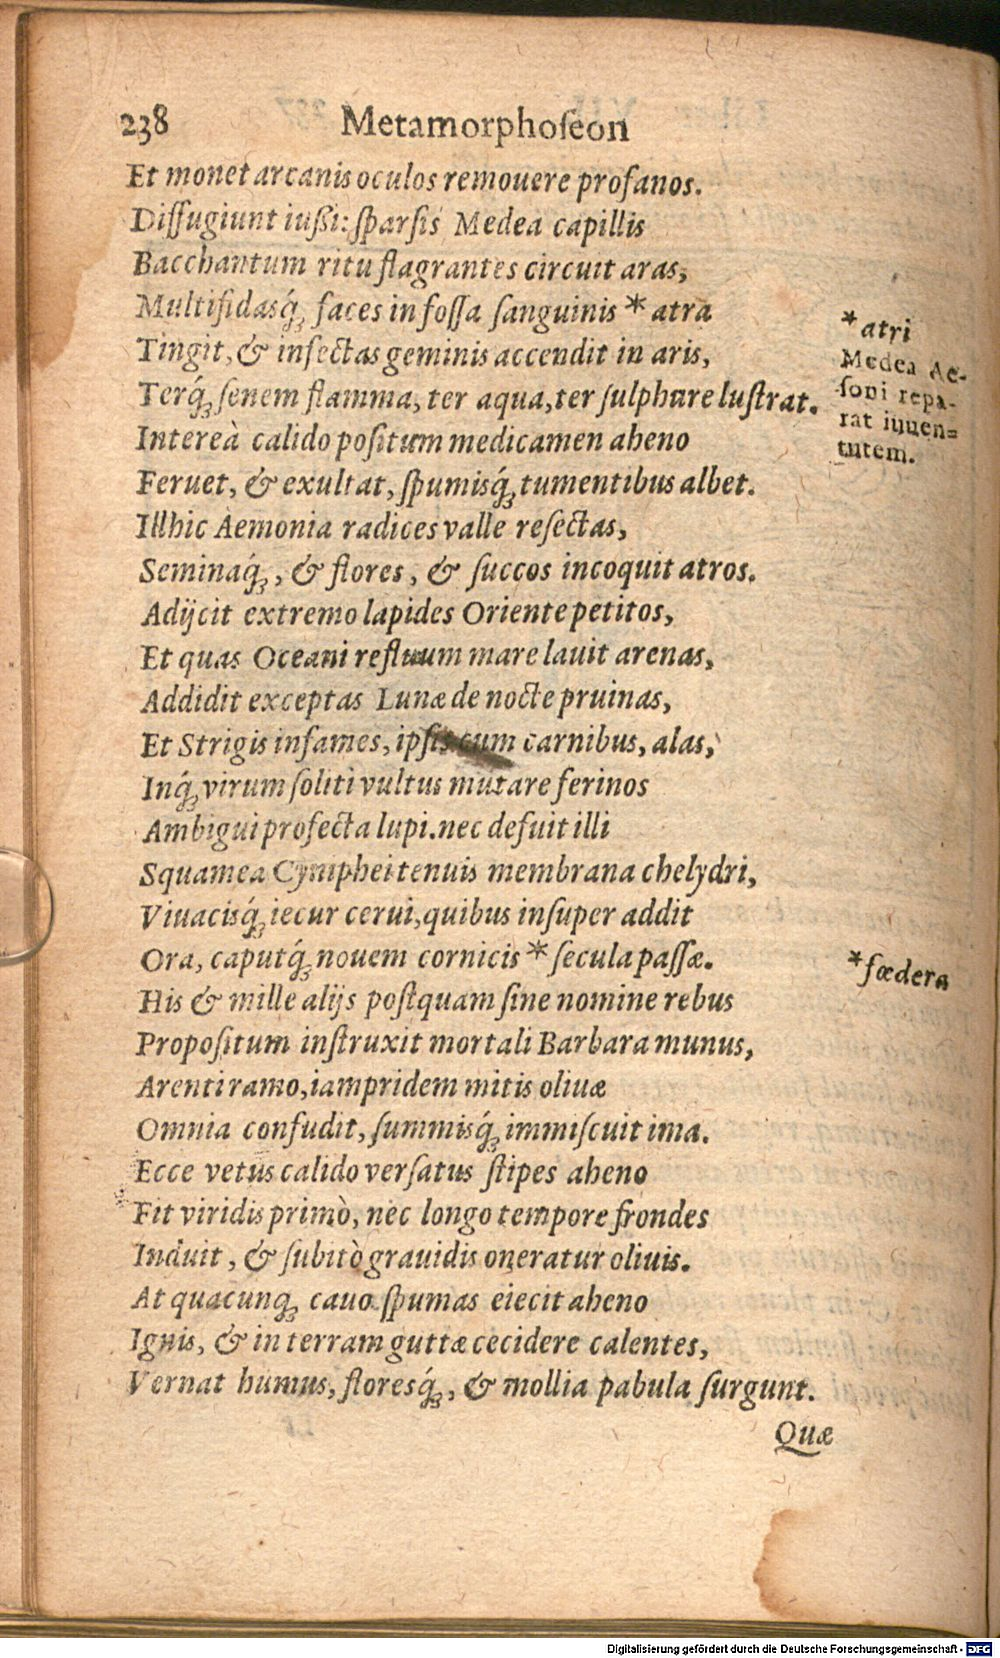 238 Metamorphoſeon
Et monet arcanis oculos remouere profanos.
Diſſugiunt iußi: ſparſis Medea capillis
Bacchantum ritu flagrantes circuit aras,
Multifidasq́ꝫ faces in foſſa ſanguinis * atra
Tingit, & infectas geminis accendit in aris,
Terq́ꝫ ſenem flamma, ter aqua, ter ſulphure luſtrat.
Intereà calido poſitum medicamen aheno
Feruet, & exultat, ſpumisq́ꝫ tumentibus albet.
Illhic Aemonia radices valle reſectas,
Seminaq́ꝫ, & flores, & ſuccos incoquit atros.
Adijcit extremo lapides Oriente petitos,
Et quas Oceani refluum mare lauit arenas,
Addidit exceptas Lunæ de nocte pruinas,
Et Strigis infames, ipſis cum carnibus, alas,
Inq́ꝫ virum ſoliti vultus mutare ferinos
Ambigui proſecta lupi. nec defuit illi
Squamea Cymphei tenuis membrana chelydri,
Viuacisq́ꝫ iecur cerui, quibus inſuper addit
Ora, caputq́ꝫ nouem cornicis * ſecula paſſæ.
His & mille alijs poſtquam ſine nomine rebus
Propoſitum inſtruxit mortali Barbara munus,
Arenti ramo, iampridem mitis oliuæ
Omnia confudit, ſummisq́ꝫ immiſcuit ima.
Ecce vetus calido verſatus ſtipes aheno
Fit viridis primò, nec longo tempore frondes
Induit, & ſubitò grauidis oneratur oliuis.
At quacunqꝫ cauo ſpumas eiecit aheno
Ignis, & in terram guttæ cecidere calentes,
Vernat humus, floresq́ꝫ, & mollia pabula ſurgunt.
Quæ
* atri
Medea Ae-
ſoni repa-
rat iuuen=
tutem.
* fœdera
Digitalisierung gefördert durch die Deutsche Forschungsgemeinschaft - DFG